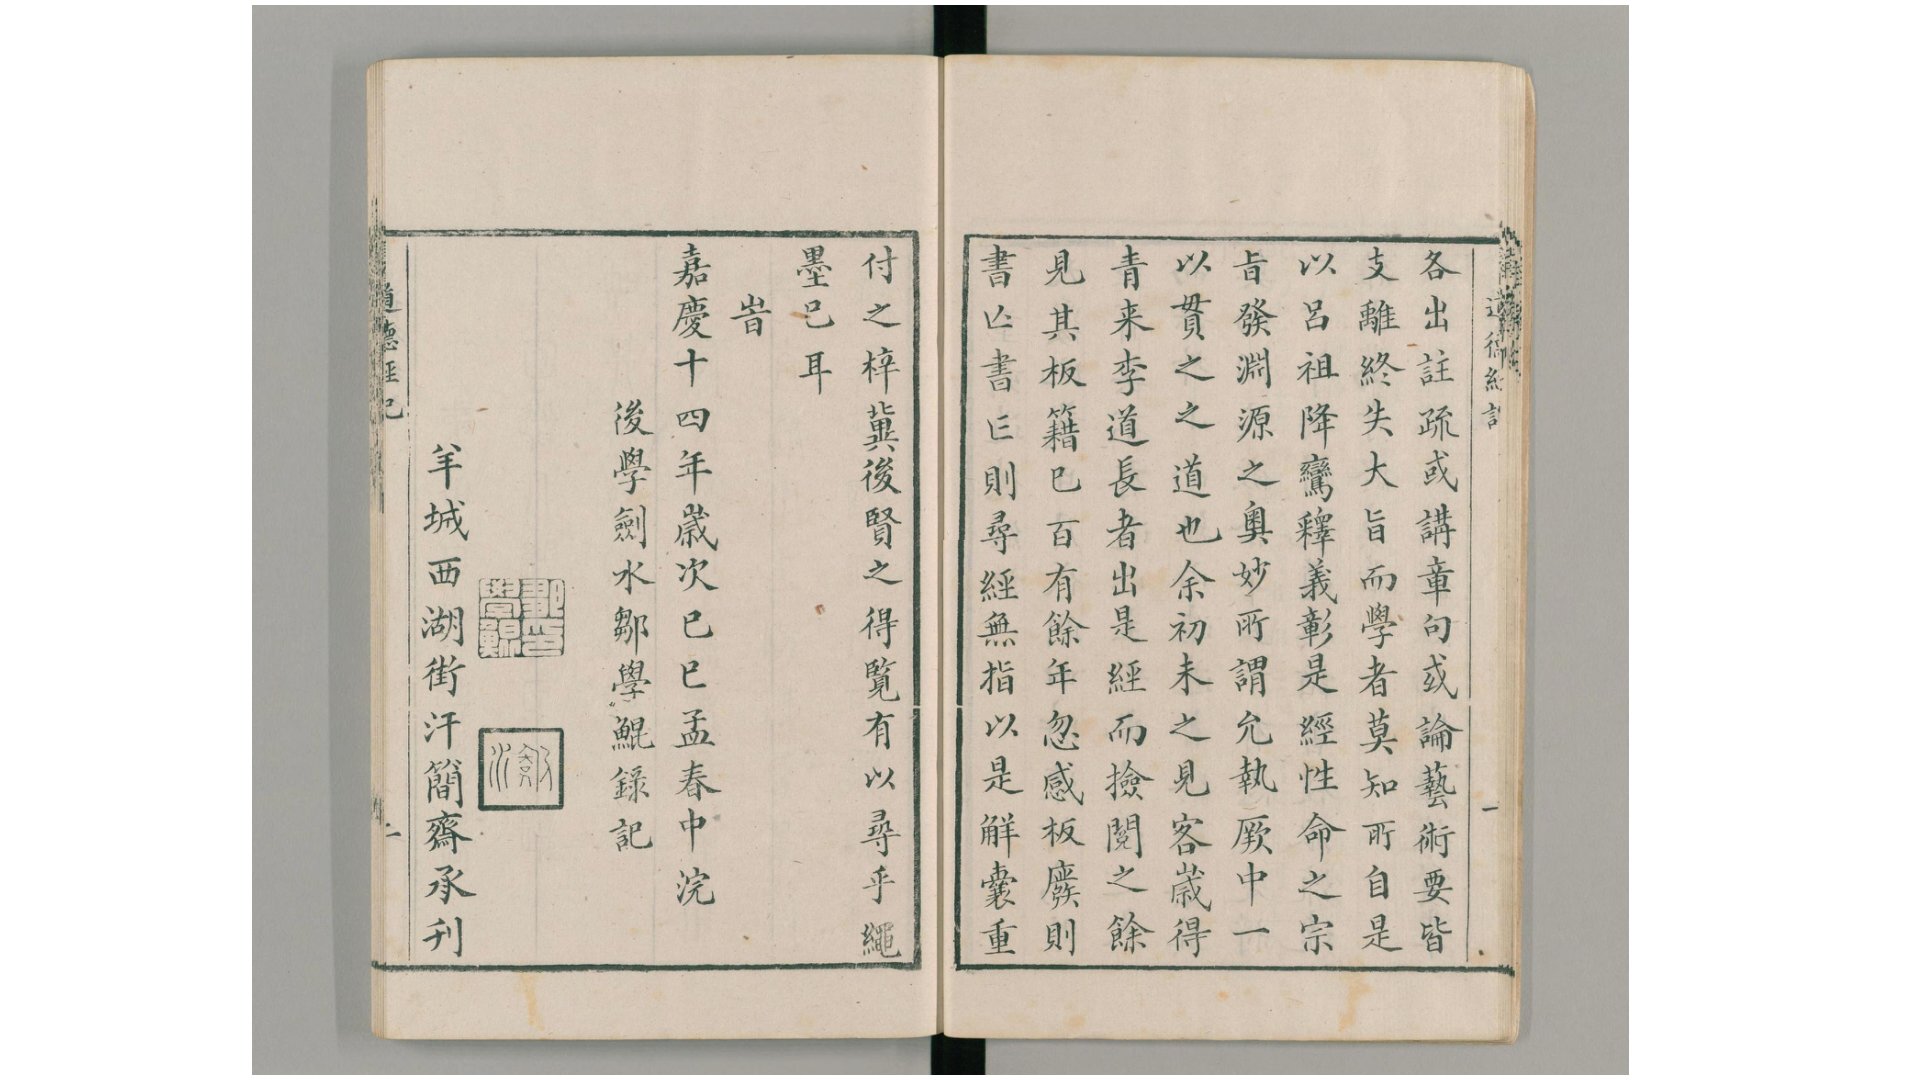 各出註疏或講章句或論藝術要皆
支離終失大旨而學者莫知所自是
以呂祖降鸞釋義彰是經性命之宗
旨發淵源之奧妙所謂允執厥中一
以貫之之道也余初未之見客歲得
青来李道長者出是經而撿閱之餘
見其板籍已百有餘年忽感板廢則
書亡書亡則尋經無指以是解囊重
付之梓冀後賢之得覽有以尋乎繩
墨已耳
旹
嘉慶十四年歲次己巳孟春中浣
後學劍水鄒學鯤錄記
羊城西湖街汗簡齋承刊
道德經記
二